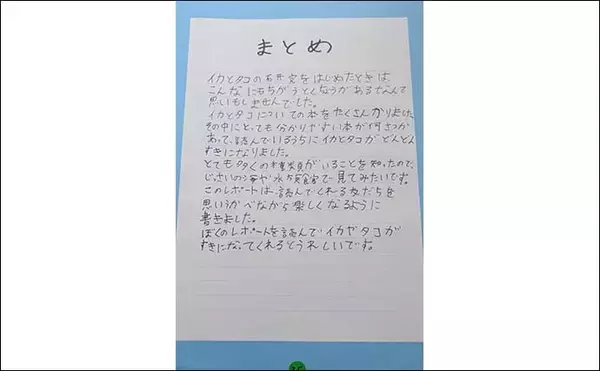 まとめ
イカとタコの研究をはじめたときは
こんなにちがうとくちょうがあるなんて
思いもしませんでした。
イカとタコについての本をたくさんかりました
その中にとても分かりやすい本が何さつか
あって、読んでいるうちにイカとタコがどんどん
すきになりました。
とても多くの種類がいることを知ったので、
じっさいの海や水族館で見てみたいです。
このレポートは、読んでくれる友だちを
思いうかべながら楽しくなるように
書きました。
ぼくのレポートを読んでイカやタコが
すきになってくれるとうれしいです。